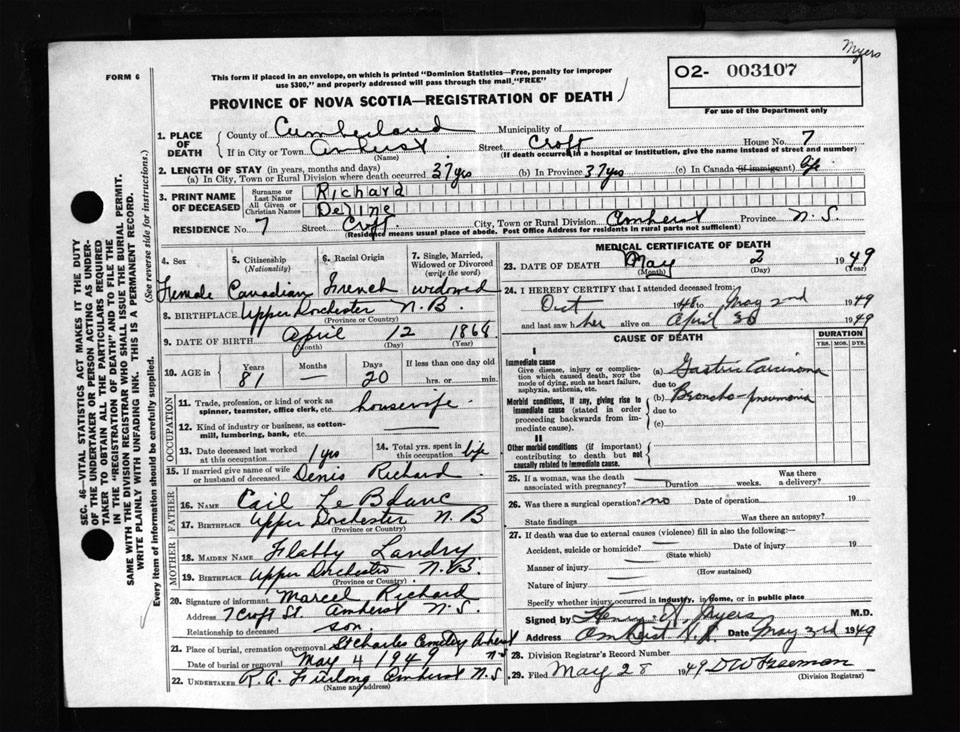 Myers
FORM 6
This form if placed in an envelope, on which is printed "Dominion Statistics—Free, penalty for improper
use $300," and properly addressed will pass through the mail "FREE"
O2- 003107
PROVINCE OF NOVA SCOTIA—REGISTRATION OF DEATH
For use of the Department only
1. PLACE OF DEATH County of Cumberland Municipality of
If in City or Town Amherst Street Croft House No. 7
(Name) (If death occurred in a hospital or institution, give the name instead of street and number)
2. LENGTH OF STAY (in years, months and days)
(a) In City, Town or Rural Division where death occurred 37 yrs (b) In Province 37 yrs (c) In Canada (if immigrant) life
3. PRINT NAME OF DECEASED Surname or Last Name Richard
All Given or Christian Names
RESIDENCE No. 7 Street Croft City, Town or Rural Division Amherst Province N.S.
(Residence means usual place of abode. Post Office Address for residents in rural parts not sufficient)
4. Sex 5. Citizenship (Nationality) 6. Racial Origin 7. Single, Married, Widowed or Divorced (write the word)
Female Canadian French widowed
8. BIRTHPLACE Upper Dorchester N.B.
(Province or Country)
9. DATE OF BIRTH April 12 1868
(Month) (Day) (Year)
10. AGE in Years Months Days If less than one day old
81 — 20 hrs. or min.
OCCUPATION
11. Trade, profession, or kind of work as spinner, teamster, office clerk, etc. housewife
12. Kind of industry or business, as cotton-mill, lumbering, bank, etc.
13. Date deceased last worked at this occupation 1 yrs 14. Total yrs. spent in this occupation life
15. If married give name of wife or husband of deceased Denis Richard
FATHER
16. NAME Cail LeBlanc
17. BIRTHPLACE Upper Dorchester N.B
(Province or Country)
MOTHER
18. MAIDEN NAME Flabby Landry
19. BIRTHPLACE Upper Dorchester N.B.
(Province or Country)
20. Signature of informant Marcel Richard
Address 7 Croft St. Amherst N.S.
Relationship to deceased son.
21. Place of burial, cremation or removal St Charles Cemetery Amherst N.S
Date of burial or removal May 4 1949
22. UNDERTAKER R.A. Furlong Amherst N.S
(Name and address)
MEDICAL CERTIFICATE OF DEATH
23. DATE OF DEATH May 2 1949
(Month) (Day) (Year)
24. I HEREBY CERTIFY that I attended deceased from
Oct 1948 to May 2nd 1949
and last saw her alive on April 30 1949
CAUSE OF DEATH DURATION
YRS. MOS. DYS.
I
Immediate cause
Give disease, injury or complication which caused death, not the mode of dying, such as heart failure, asphyxia, asthenia, etc.
(a) Gastric Carcinoma
due to
Morbid conditions, if any, giving rise to immediate cause (stated in order proceeding backwards from immediate cause).
(b) Broncho-pneumonia
due to
(c)
II
Other morbid conditions (if important) contributing to death but not causally related to immediate cause.
25. If a woman, was the death associated with pregnancy? Duration weeks. Was there a delivery?
26. Was there a surgical operation? no Date of operation 19
State findings Was there an autopsy?
27. If death was due to external causes (violence) fill in also the following:—
Accident, suicide or homicide? Date of injury 19
(State which)
Manner of injury
(How sustained)
Nature of injury
Specify whether injury occurred in industry, in home, or in public place
Signed by Henry Myers M.D.
Address Amherst N.S. Date May 3rd 1949
28. Division Registrar's Record Number
29. Filed May 28 1949 DW Freeman
(Division Registrar)
SEC. 46—VITAL STATISTICS ACT MAKES IT THE DUTY
OF THE UNDERTAKER OR PERSON ACTING AS UNDER-
TAKER TO OBTAIN ALL THE PARTICULARS REQUIRED
IN THE "REGISTRATION OF DEATH" AND TO FILE THE
SAME WITH THE DIVISION REGISTRAR WHO SHALL ISSUE THE BURIAL PERMIT.
WRITE PLAINLY WITH UNFADING INK. THIS IS A PERMANENT RECORD.
Every item of information should be carefully supplied. (See reverse side for instructions.)